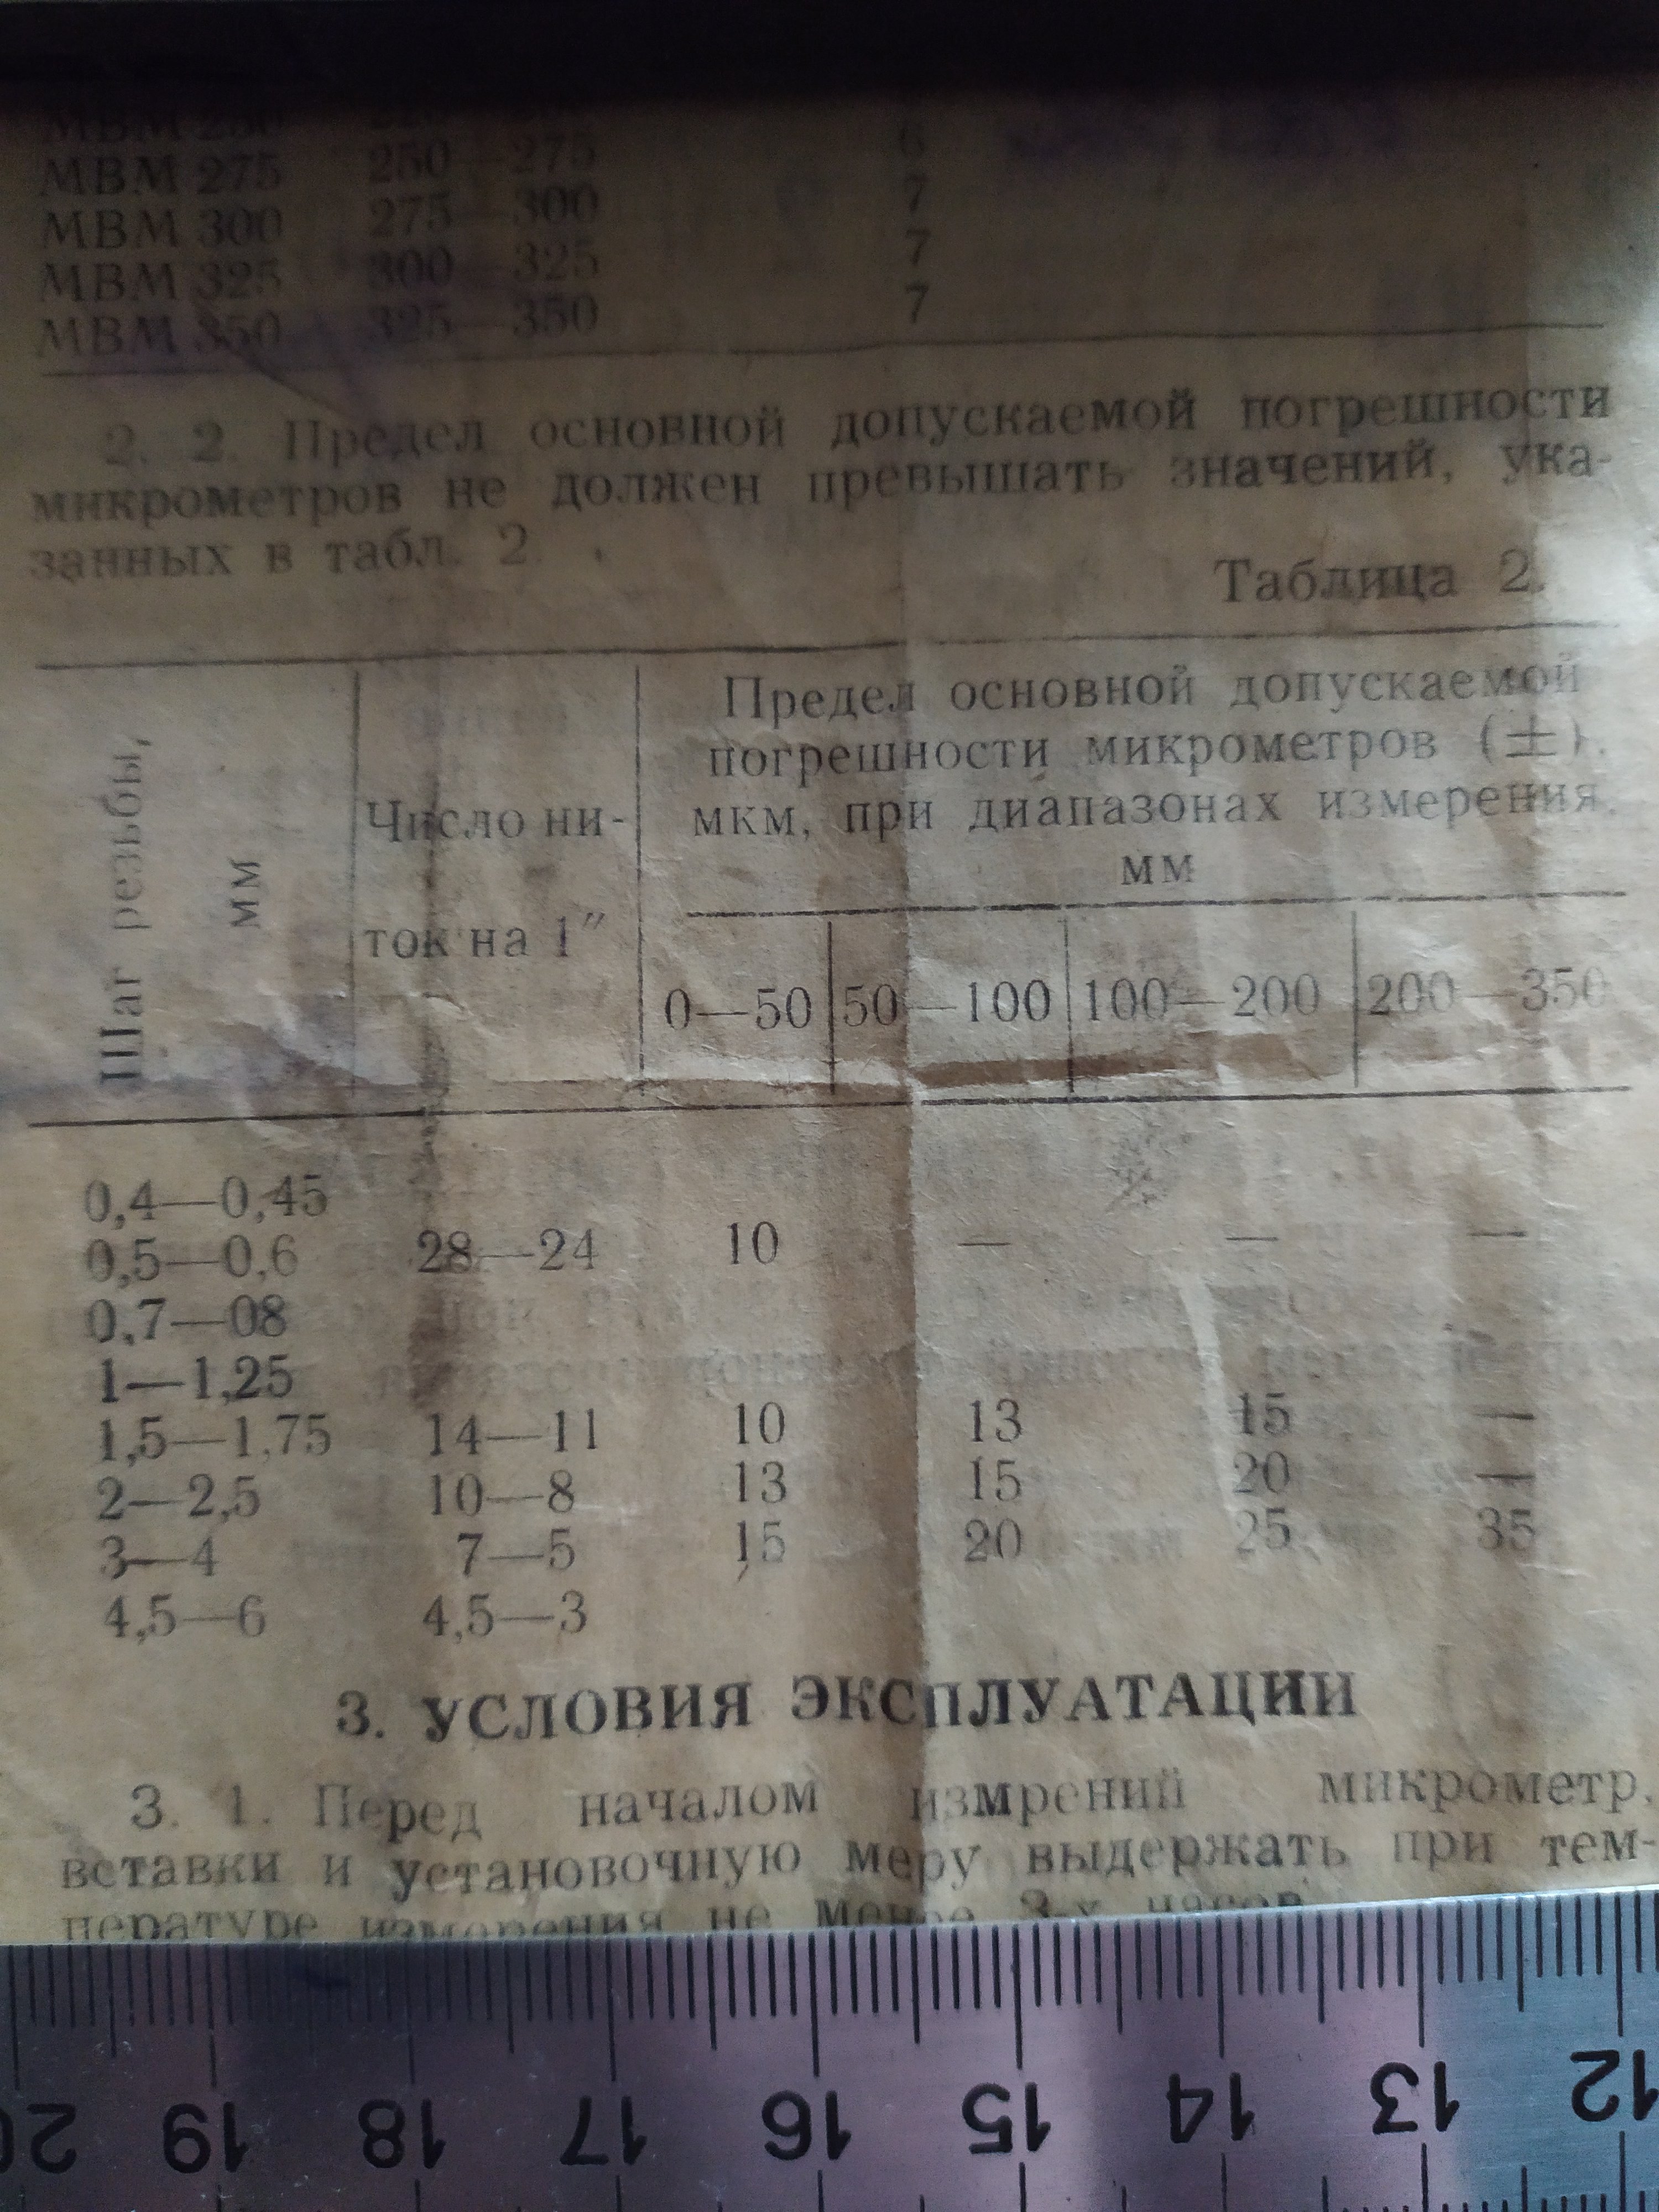 МВМ 250
МВМ 275 250—275 6
МВМ 300 275—300 7
МВМ 325 300—325 7
МВМ 350 325—350 7
2. 2. Предел основной допускаемой погрешности
микрометров не должен превышать значений, ука-
занных в табл. 2.
Таблица 2.
Шаг резьбы,
мм
Число ни-
ток на 1″
Предел основной допускаемой
погрешности микрометров (±),
мкм, при диапазонах измерения,
мм
0—50 50—100 100—200 200—350
0,4—0,45
0,5—0,6 28—24 10 — — —
0,7—08
1—1,25
1,5—1,75 14—11 10 13 15 —
2—2,5 10—8 13 15 20 —
3—4 7—5 15 20 25 35
4,5—6 4,5—3
3. УСЛОВИЯ ЭКСПЛУАТАЦИИ
3. 1. Перед началом измрений микрометр,
вставки и установочную меру выдержать при тем-
пературе измерения не менее 3-х часов
20 19 18 17 16 15 14 13 12